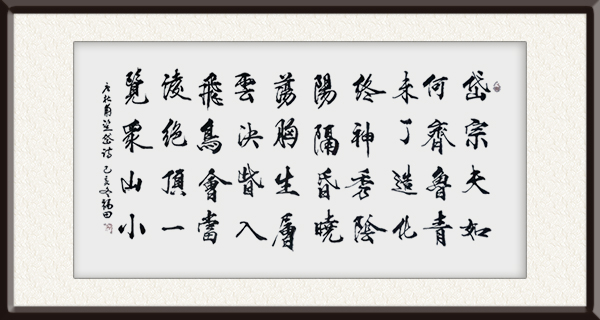 岱宗夫如
何齊魯青
未了造化
終神秀陰
陽隔昏曉
蕩胸生層
雲決眥入
飛鳥會當
淩絕頂一
覽眾山小
唐杜甫望岳詩 己亥冬 田